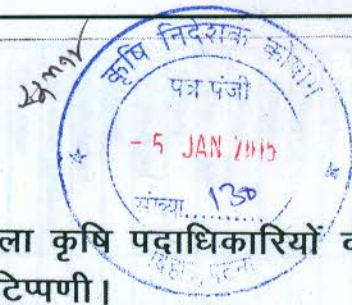 कृषि निदेशक कोषांग
पत्र पंजी
- 5 JAN 2015
संख्या.......130
बिहार, पटना
ला कृषि पदाधिकारियों
टिप्पणी।